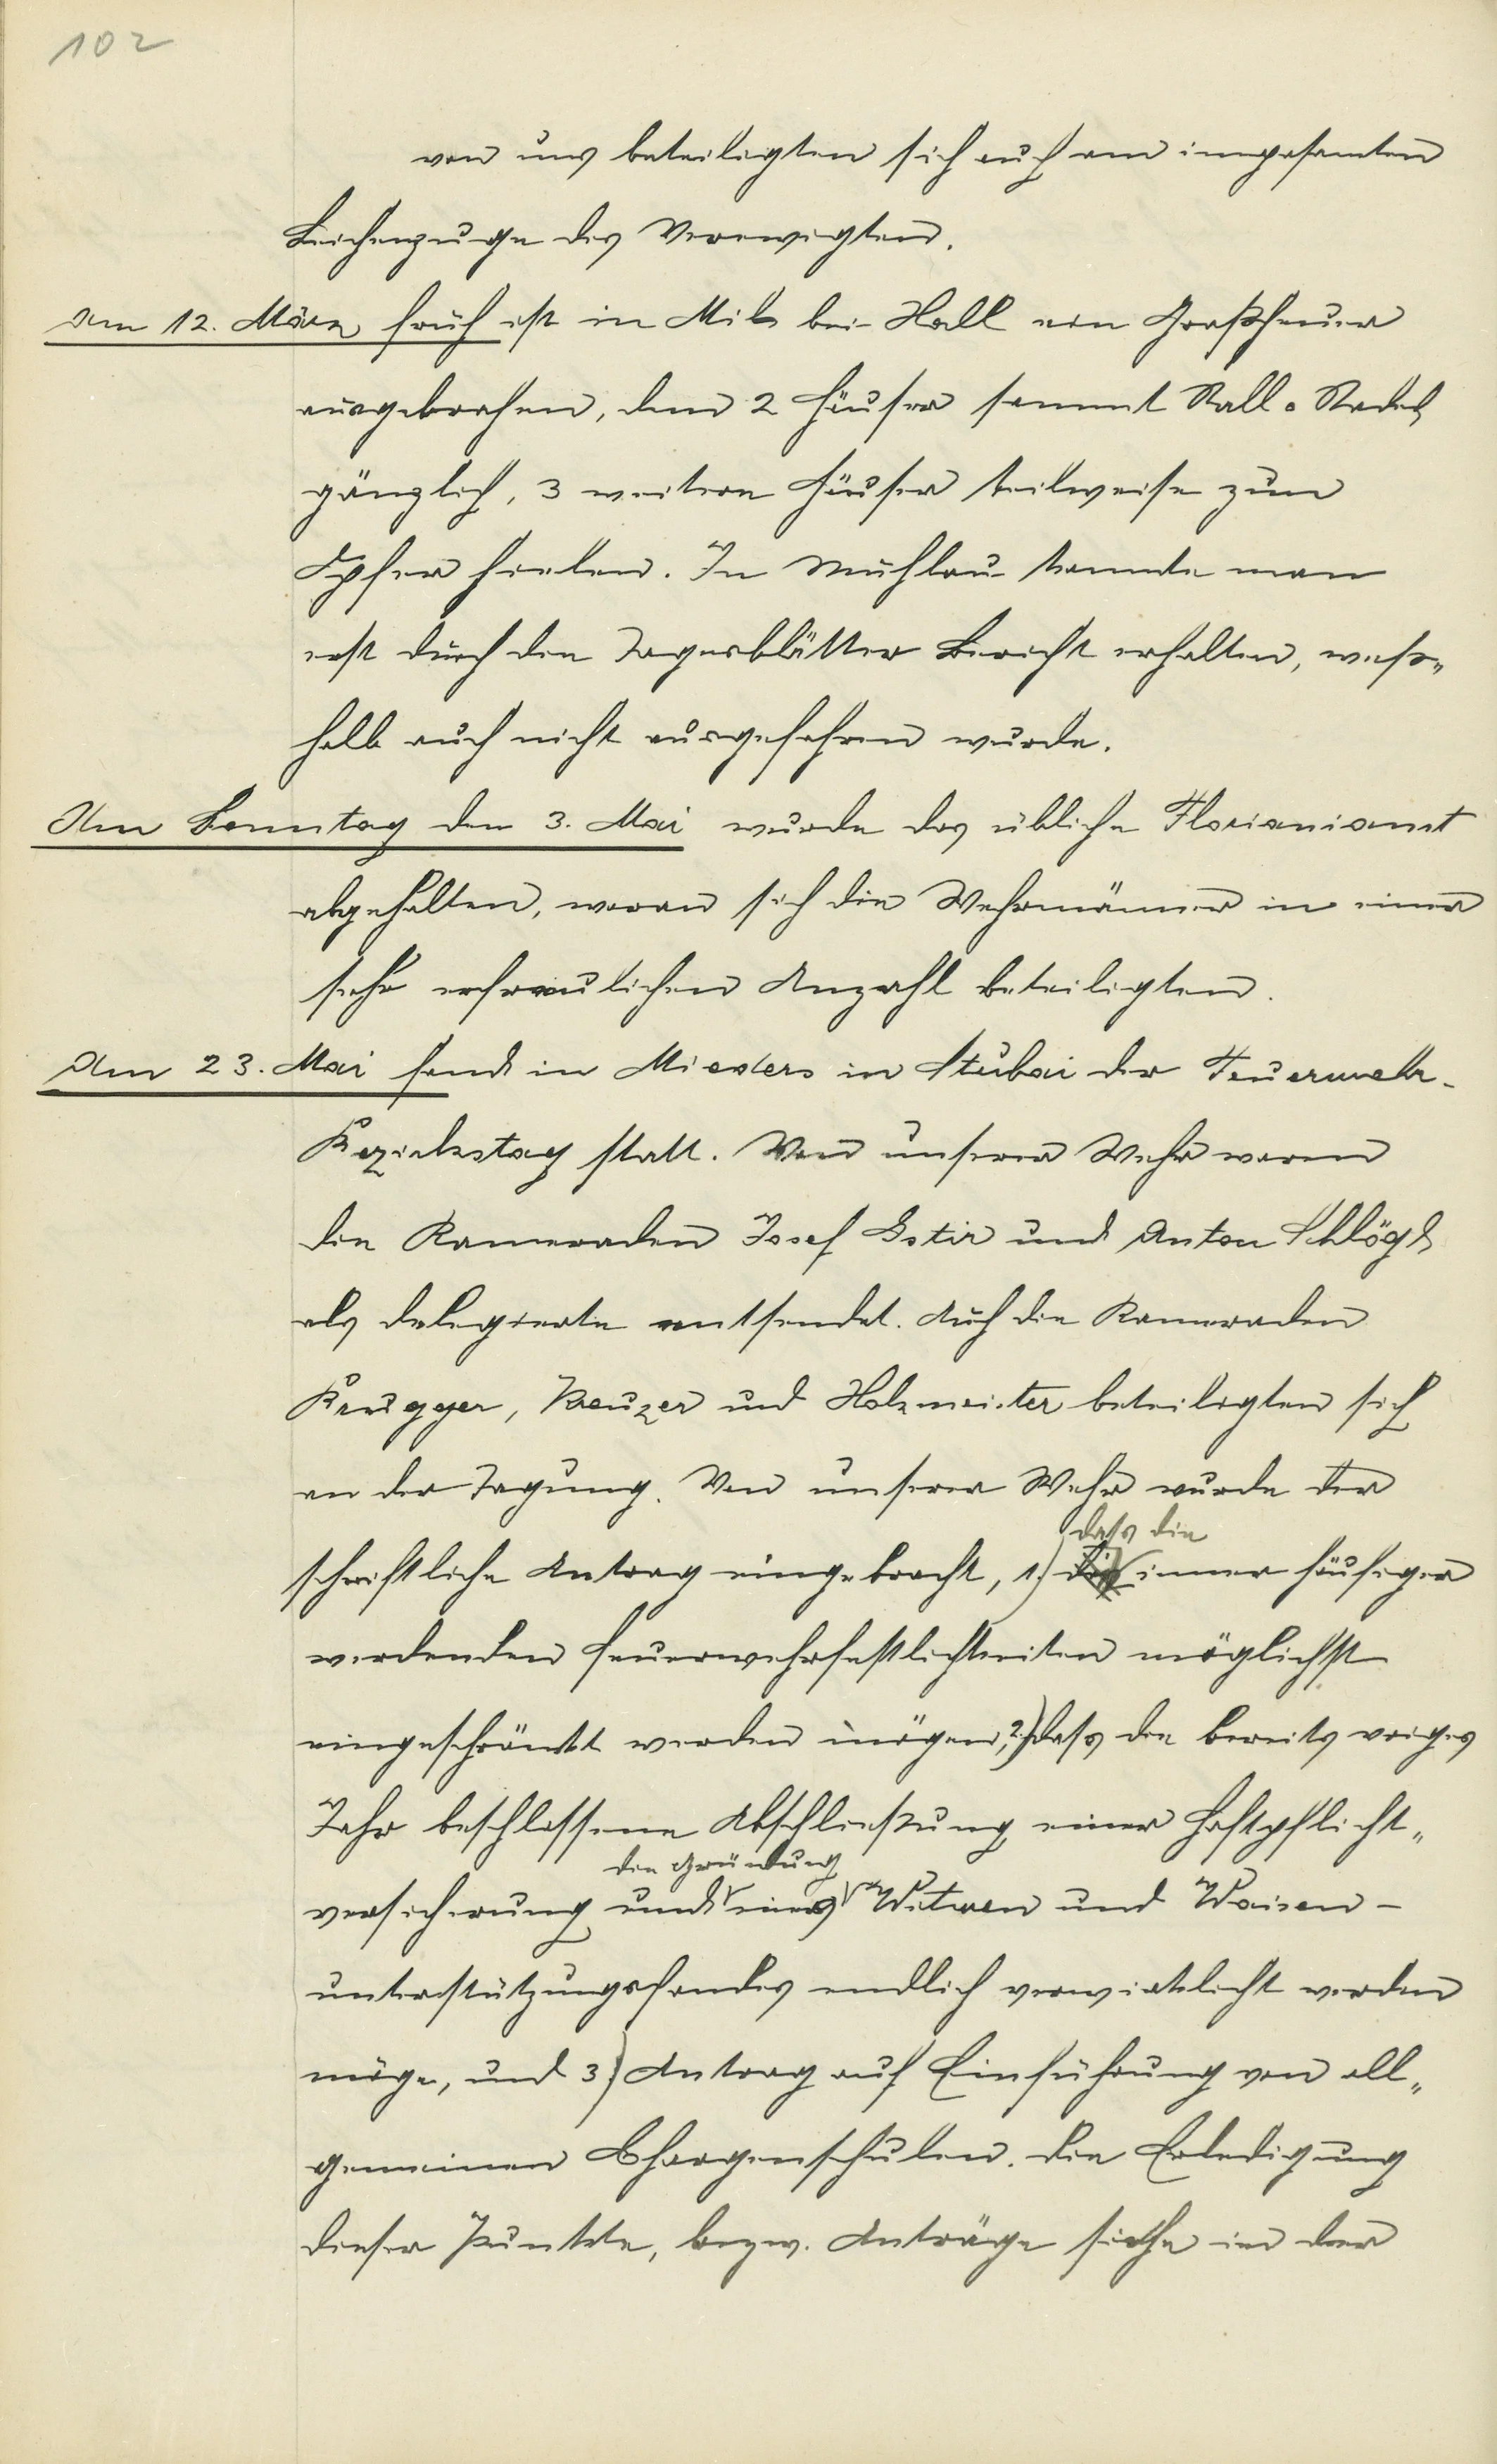 102
von uns beteiligten sich auch am imposanten
Leichenzuge des Verewigten.
Am 12. März früh ist in Mils bei Hall ein Großfeuer
ausgebrochen, dem 2 Häuser sammt Stall u Stadel
gänzlich, 3 weitere Häuser teilweise zum
Opfer fielen. In Mühlau konnte man
erst durch die Tagesblätter Bericht erhalten, weß„
halb auch nicht ausgefahren wurde.
Am Sonntag den 3. Mai wurde das übliche Florianiamt
abgehalten, woran sich die Wehrmänner in einer
sehr erfreulichen Anzahl beteiligten.
Am 23. Mai fand in Mieders in Stubai der Feuerwehr-
Bezirkstag statt. Von unserer Wehr waren
die Kameraden Josef Gstir und Anton Schlögl
als Delegierte entsendet. Auch die Kameraden
Brugger, Kreuzer und Holzmeister beteiligten sich
an der Tagung. Von unserer Wehr wurde der
dass die
schriftliche Antrag eingebracht, 1.) immer häufiger
werdenden Feuerwehrfestlichkeiten möglichst
eingeschränkt werden mögen, 2.) dass die bereits voriges
Jahr beschlossene Abschließung einer Haftpflicht„
die Gründung
versicherung und eines Witwen und Waisen-
unterstützungsfondes endlich verwirklicht werden
möge, und 3) Antrag auf Einführung von all„
gemeinen Chargenschulen. Die Erledigung
dieser Punkte, bezw. Anträge siehe in der